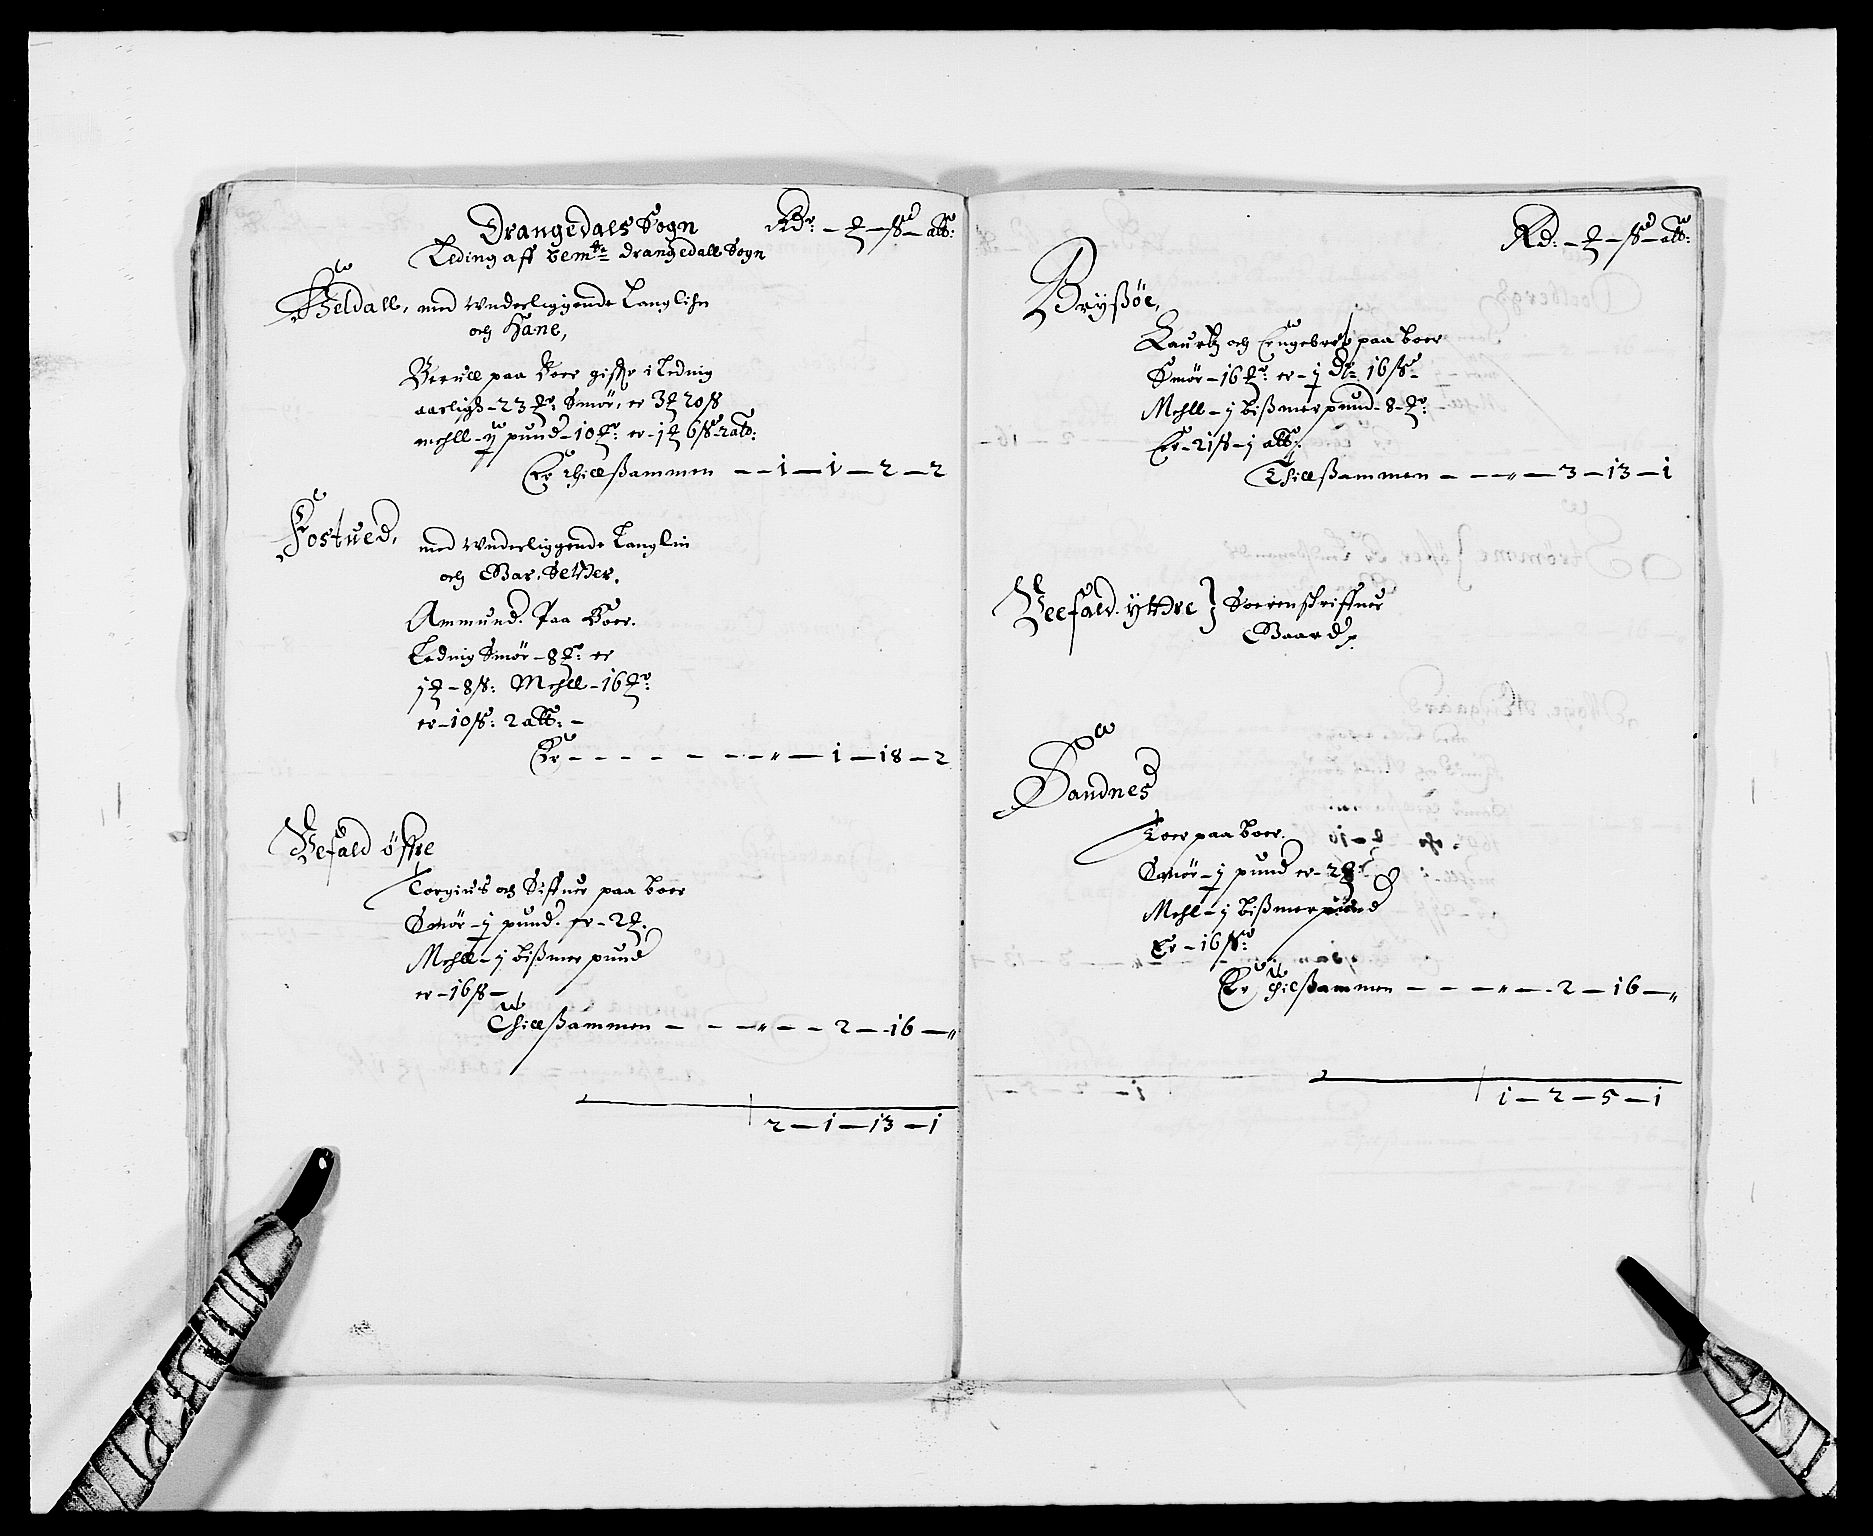 Drangedals Sogn Rdr: – ℔ – ß – alb:
Leding aff bemte Drangedall Sogn
Heldall, med Underliggende Langlihn
och Hane,
paa boer giffr i Leding
aarligs – 23 ℔: Smör, er 3 ℔ 20 ß
mehll – j pund – 10 ℔: er – j ℔ 6 ß 2 alb:
Er thillsammen – – 1 – 1 – 2 – 2
Fostued, med Underliggende Langlin
och Bar, Setther.
Ammund. Paa Boer.
Leding Smör – 8 ℔: er
j ℔ – 8 ß: Mehll – 16 ℔:
er – 10 ß: 2 alb: –
Er – – – – – – – „ – 1 – 18 – 2
Vefald öffre
Torgius och Siffuer paa boer
Smör – j pund. er – 2 ℔:
Mehll – j bißmer pund
er – 16 ß –
Thillsammen – – – „ – – 2 – 16 – „
2 – 1 – 13 – 1
Rd: – ℔ – ß – alb:
Bryßöe,
Lauritz och Engebret paa boer
Smör – 16 ℔: er – j 16 ß –
Mehll – j bißmer pund – 8 ℔:
Er – 21 ß – j alb:
Thillsammen – – – „ – 3 – 13 – 1
Veefald yttre } Soerenskriffuer
Gaard
Sandnes
Toer paa boer.
Smör – j pund er – 2 ℔
Mehl – j bißmer pund
Er – 16 ß:
Er thilsammen – – – „ – 2 – 16 – „
1 – 2 – 5 – 1